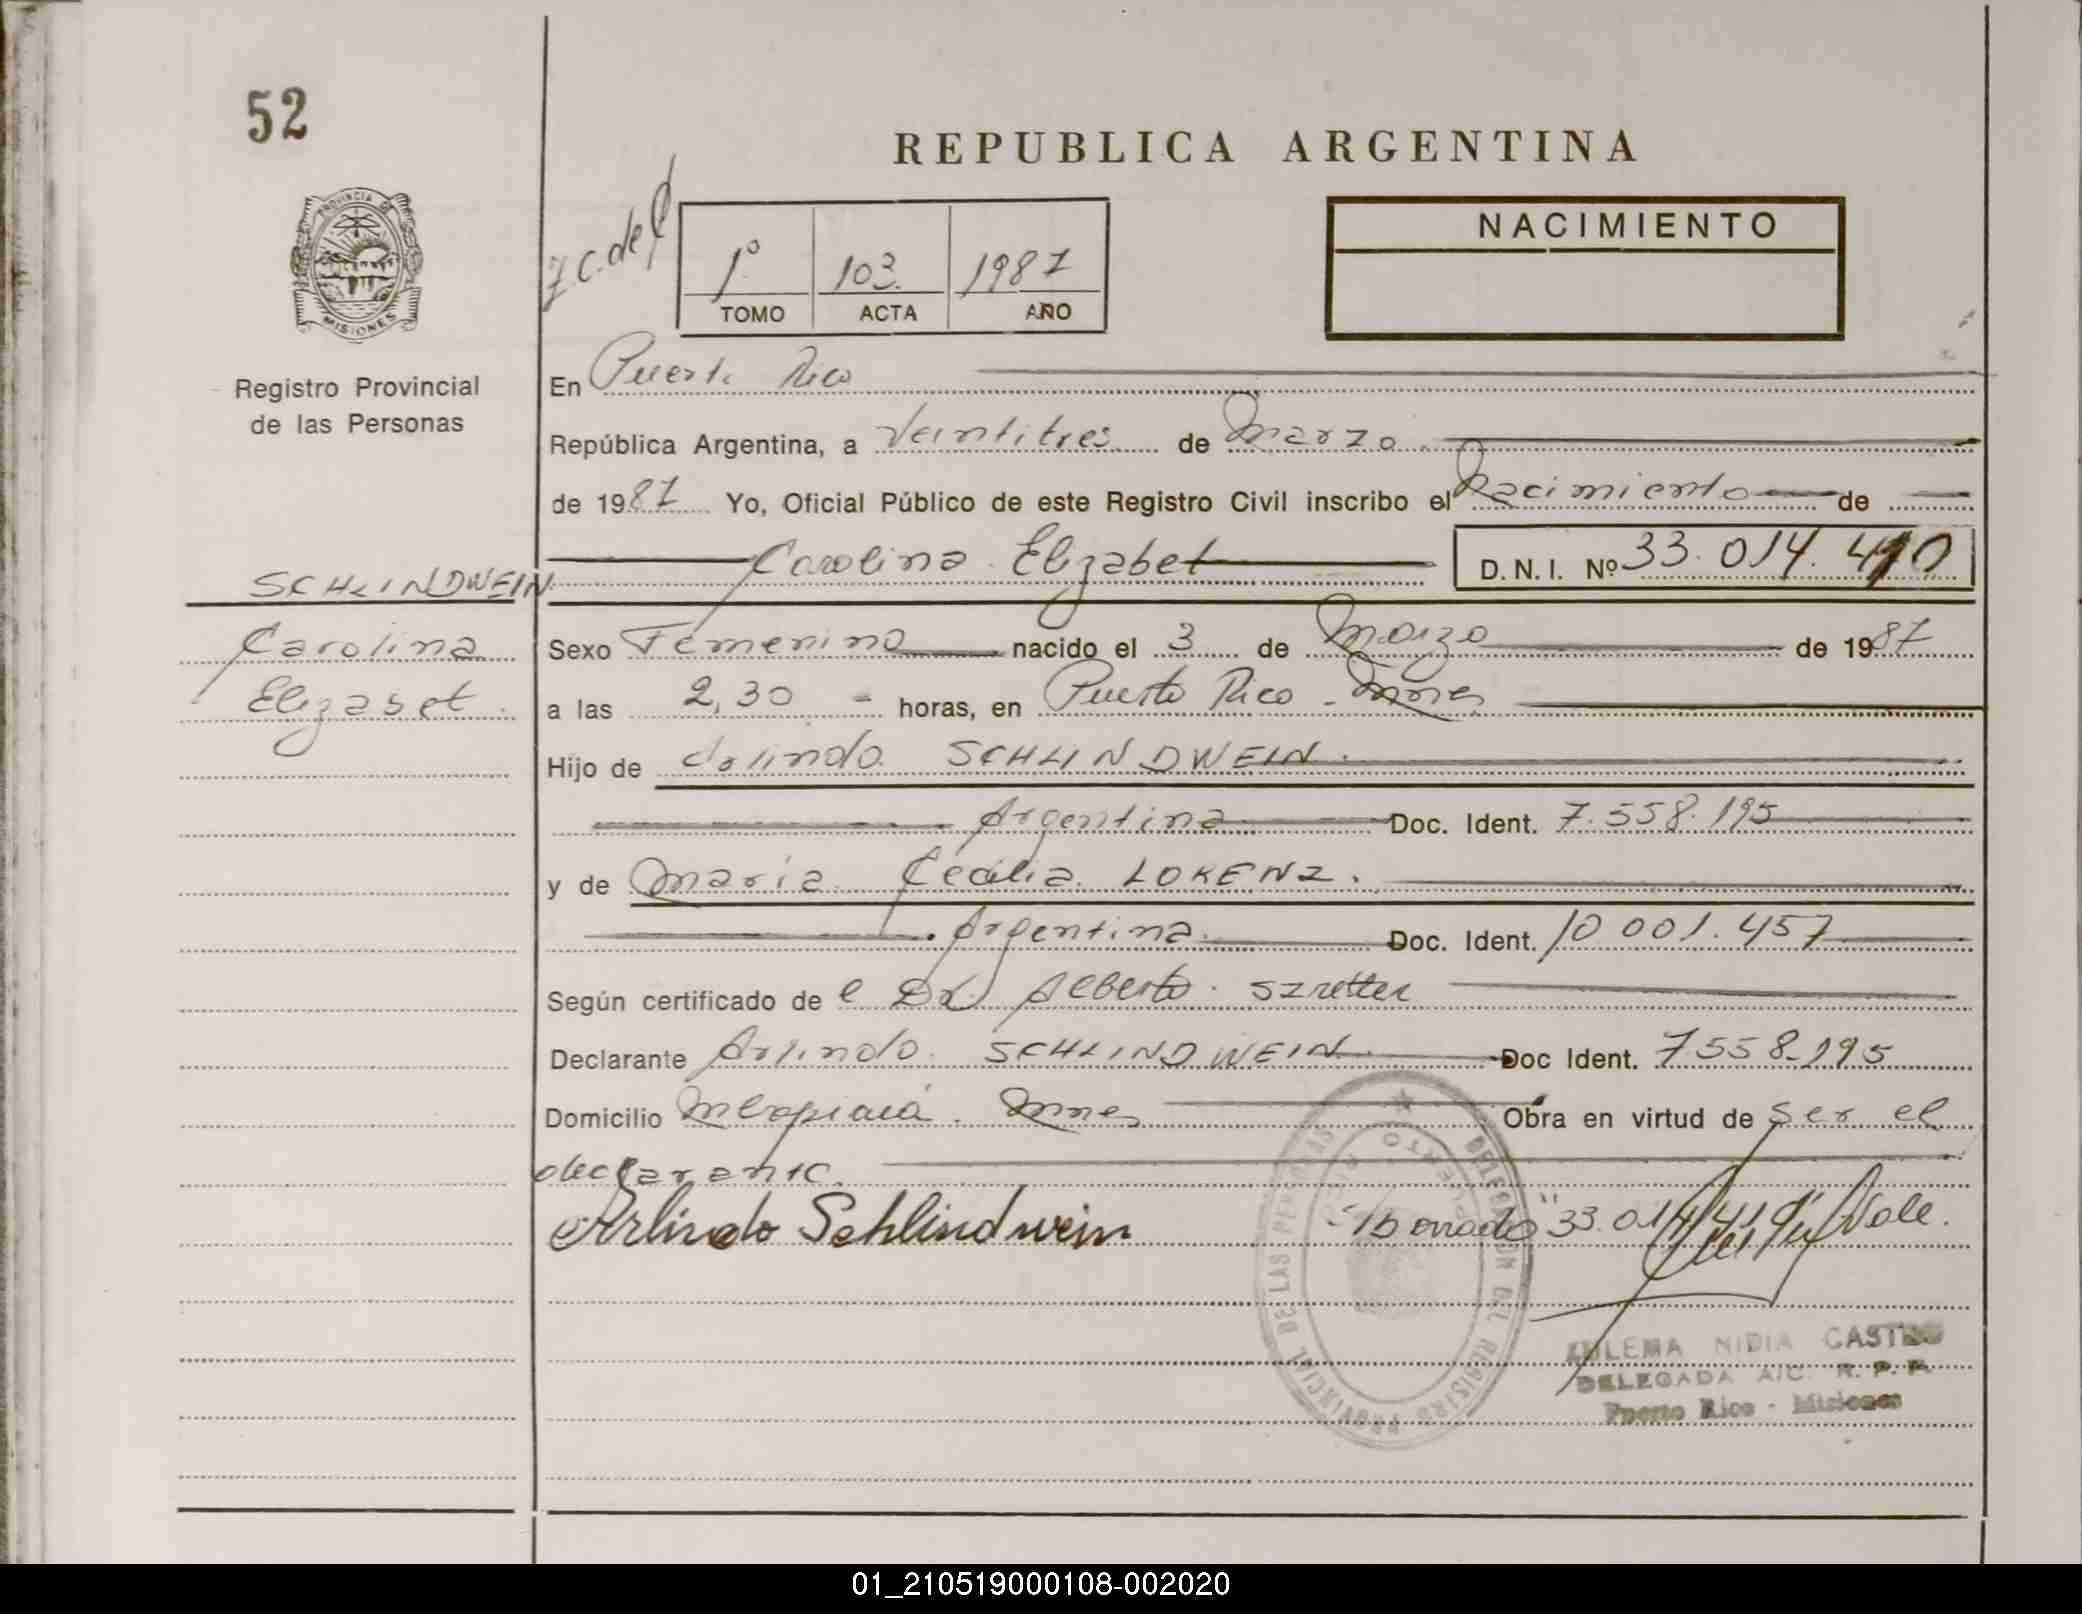 52
REPUBLICA ARGENTINA
PROVINCIA DE
MISIONES
Registro Provincial
de las Personas
1º 103 1987
TOMO ACTA AÑO
NACIMIENTO
En Puerto Rico
República Argentina, a Veintitres de Marzo
de 1987 Yo, Oficial Público de este Registro Civil inscribo el Nacimiento de
Carolina Elizabet D.N.I. Nº 33.014.410
SCHLINDWEIN
Carolina
Elizabet
Sexo Femenino nacido el 3 de Marzo de 1987
a las 2,30 horas, en Puerto Rico - Mnes
Hijo de Arlindo SCHLINDWEIN.
Argentina Doc. Ident. 7.558.195
y de María Cecilia LORENZ.
Argentina. Doc. Ident. 10.001.457
Según certificado de el Dr. Alberto Szretter
Declarante Arlindo SCHLINDWEIN Doc Ident. 7.558.195
Domicilio Mbopicuá. Mnes Obra en virtud de ser el
declarante.
Arlindo Schlindwein
"Borrado" 33.014. Vale.
DELEGACION DEL REGISTRO PROVINCIAL DE LAS PERSONAS
PUERTO RICO
ZULEMA NIDIA CASTRO
DELEGADA A/C. R. P. P.
Puerto Rico - Misiones
01_210519000108-002020